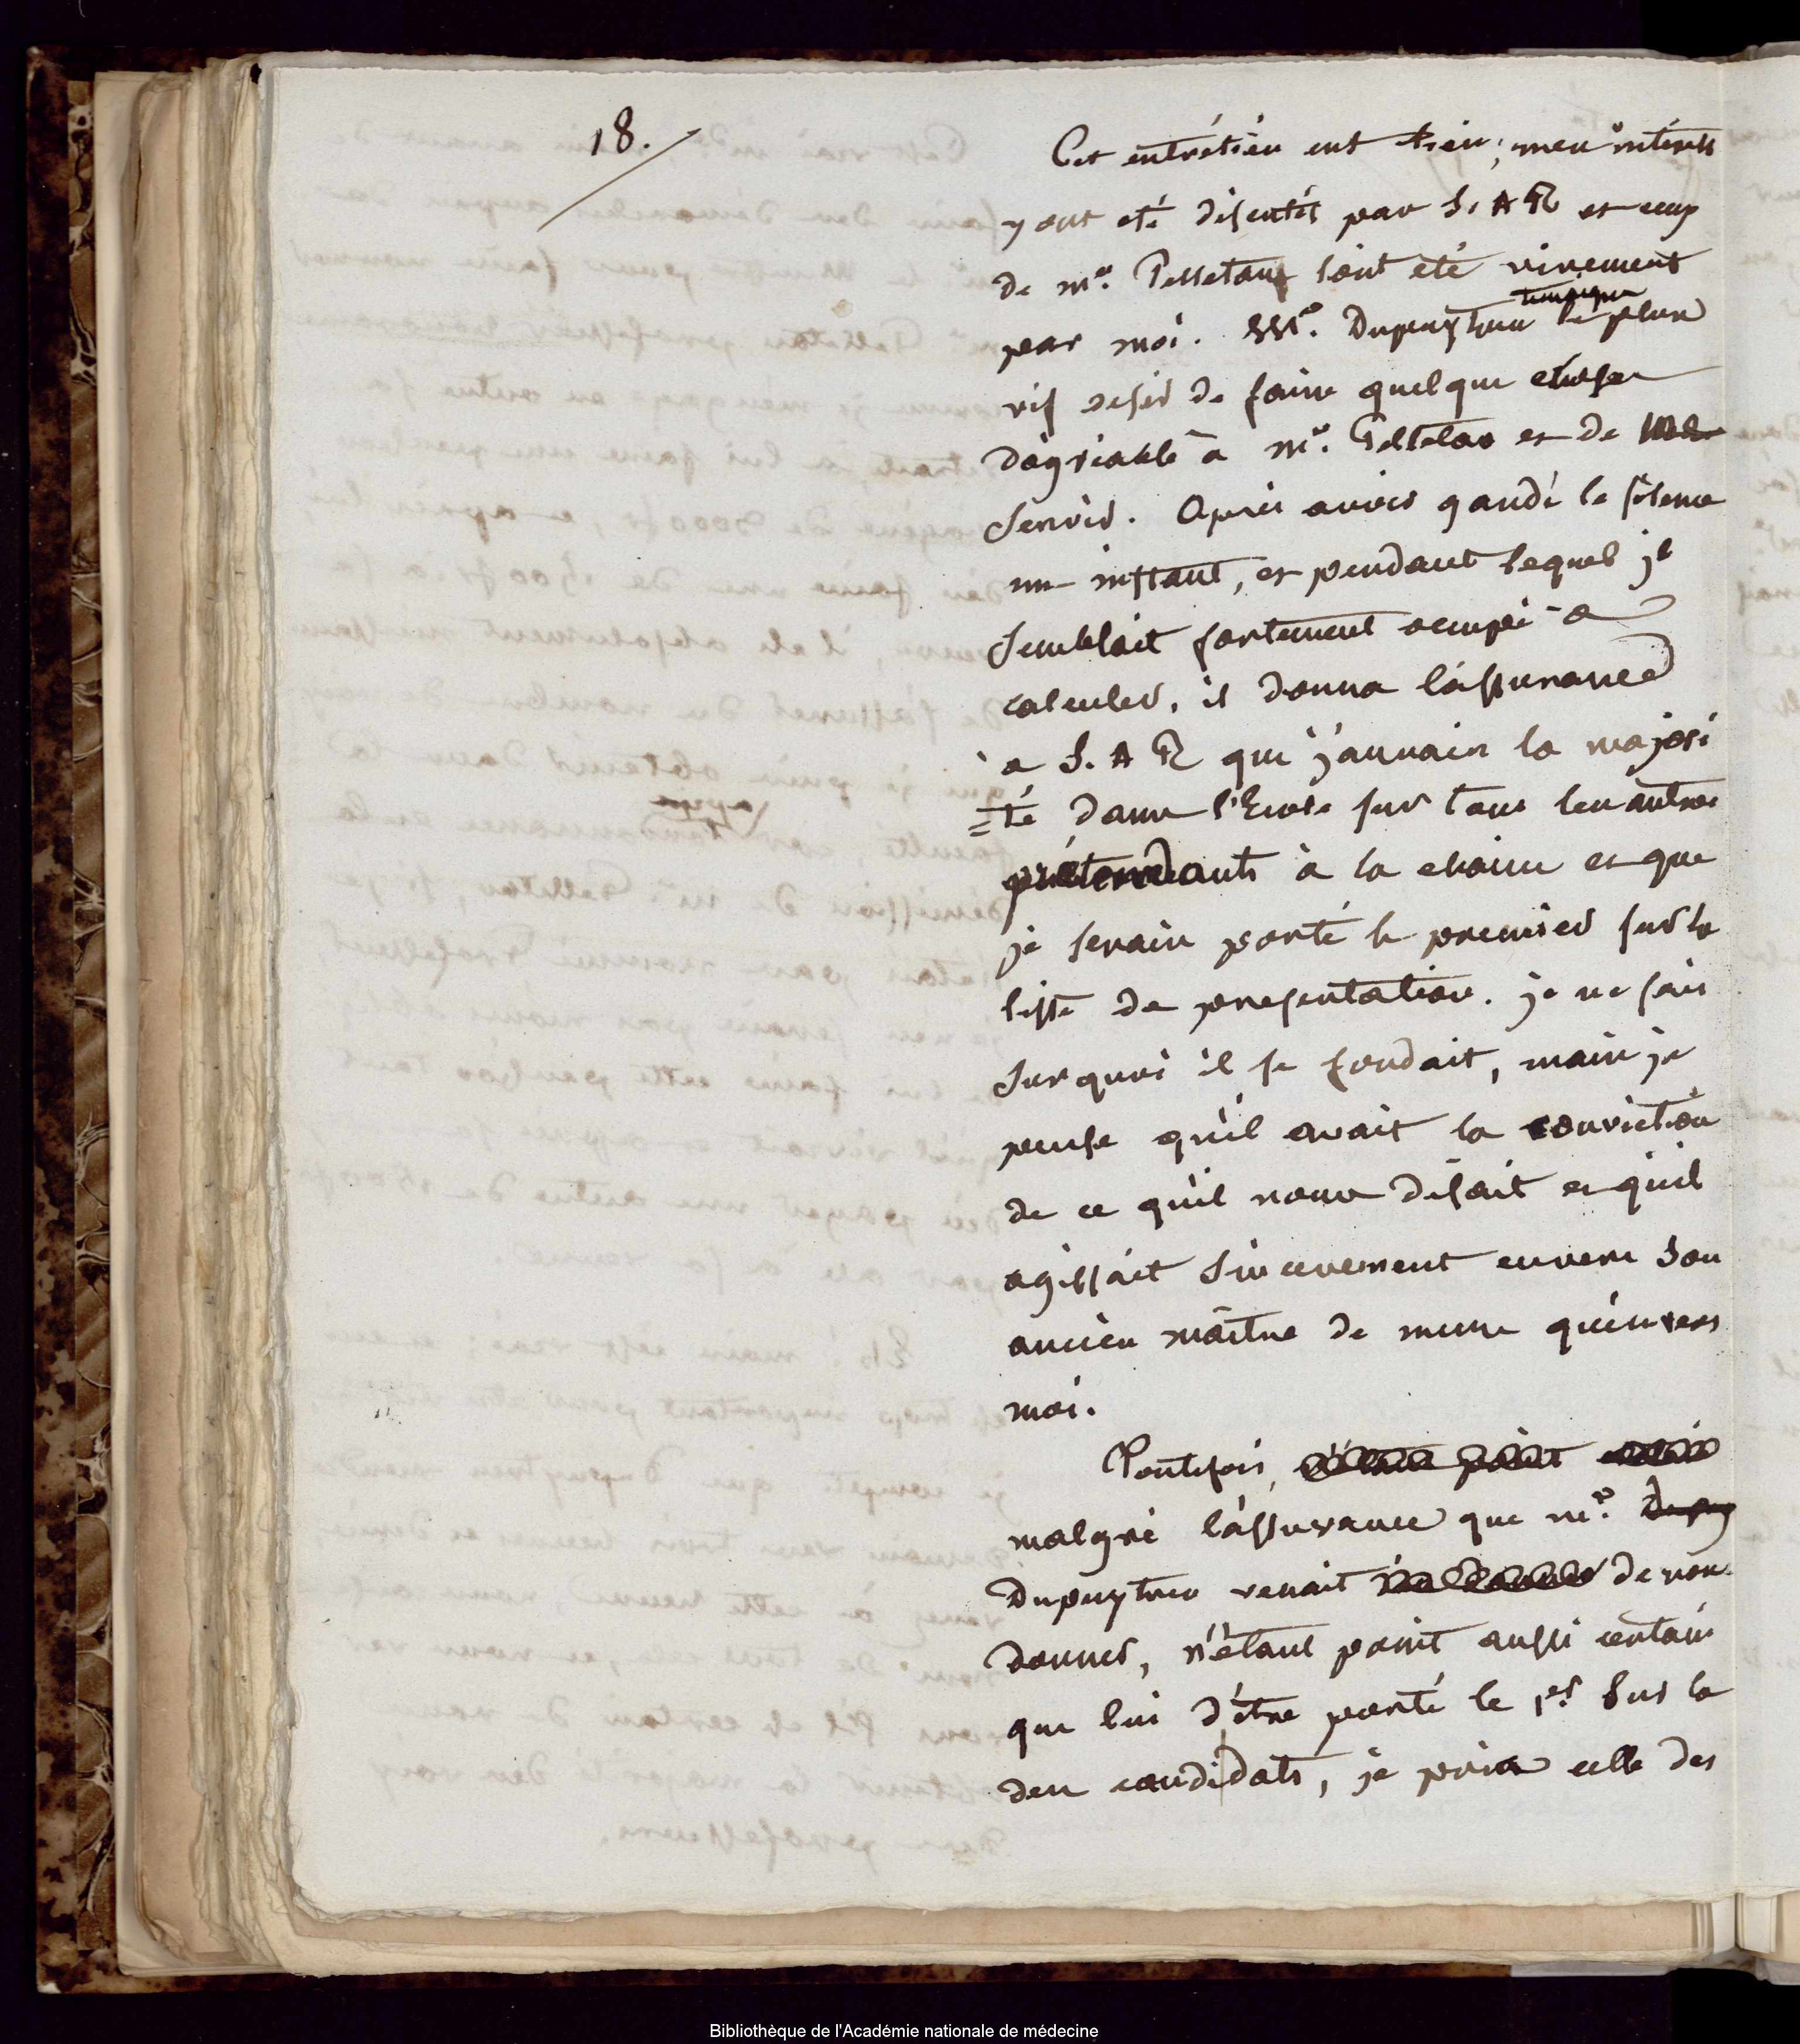 18.
Cet entretien eut lieu; mes intérêts
y ont eté discutés par S. A R et ceux
de mr. Pelletan l'ont été vivement
par moi. Mr. Dupuytren temoigna le plus
vif desir de faire quelque chose
d'agréable à mr. Pelletan et de me
servir. Après avoir gardé le silence
un instant, et pendant lequel il
semblait fortement occupé a
calculer, il donna l'assurance
à S. A R que j'aurais la majori
=té dans l'Ecole sur tous les autres
prétendants à la chaire et que
je serais porté le premier sur la
liste de presentation. je ne sais
sur quoi il se fondait, mais je
pense qu'il avait la conviction
de ce qu'il nous disait et qu'il
agissait sincerement envers son
ancien maître de meme qu'envers
moi.
Toutefois, n'étant point
malgré l'assurance que mr. Dupuy
Dupuytren venait de nous
donner, n'étant point aussi certain
que lui d'être porté le 1er. sur la
des candidats, je priai celle des
Bibliothèque de l'Académie nationale de médecine